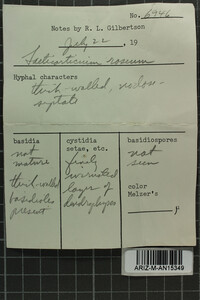 No. 6946
Notes by R. L. Gilbertson
July 22, 19
Laeticorticium roseum
Hyphal characters
thin-walled, nodose-
septate
basidia
not
mature
thin-walled
basidioles
present
cystidia
setae, etc.
finely
layer of
dendrophyses
basidiospores
not
seen
color
Melzer's
µ
ARIZ-M-AN15349